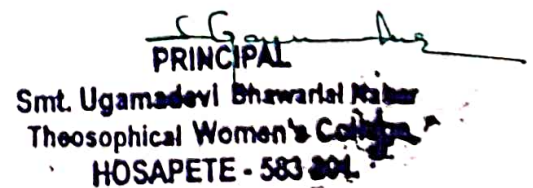 PRINCIPAL
Smt. Ugamadevi Bhawarlal Nahar
Theosophical Women's College
HOSAPETE - 583 201.